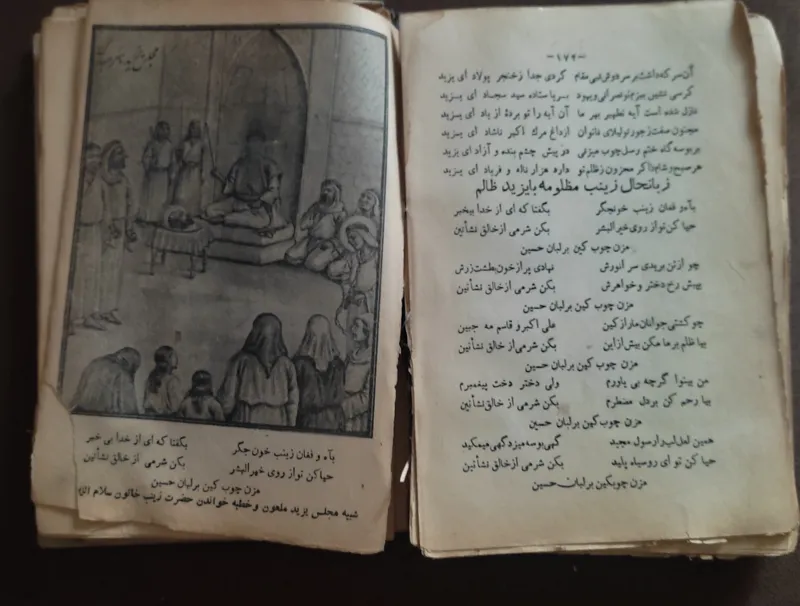 -۱۷۲-
آن سر که داشت بر سر دوش نبی مقام گردی جدا زخنجر پولاد ای یزید
کرسی نشین ببزم تو نصرانی و یهود سرپا ستاده سید سجاد ای یزید
نازل شده است آیه تطهیر بهر ما آن آیه را تو بردهٔ از یاد ای یزید
مجنون صفت زجور تو لیلای ناتوان از داغ مرك اکبر ناشاد ای یزید
بر بوسه گاه ختم رسل چوب میزنی در پیش چشم بنده و آزاد ای یزید
هر صبح و شام ذاکر محزون زظلم تو دارد هزار ناله و فریاد ای یزید
زبانحال زینب مظلومه بایزید ظالم
بآه و فغان زینب خونجگر بگفتا که ای از خدا بیخبر
حیا کن تو از روی خیرالبشر بکن شرمی از خالق نشأتین
مزن چوب کین بر لبان حسین
چو ازتن بریدی سر انورش نهادی پر از خون بطشت زرش
به پیش رخ دختر و خواهرش بکن شرمی از خالق نشأتین
مزن چوب کین بر لبان حسین
چو کشتی جوانان ما را زکین علی اکبر و قاسم مه جبین
بیا ظلم بر ما مکن بیش از این بکن شرمی از خالق نشأتین
مزن چوب کین بر لبان حسین
من بینوا گرچه بی یاورم ولی دختر دخت پیغمبرم
بیا رحم کن بر دل مضطرم بکن شرمی از خالق نشأتین
مزن چوب کین بر لبان حسین
همین لعل لب را رسول مجید گهی بوسه میزد گهی میمکید
حیا کن تو ای روسیاه پلید بکن شرمی از خالق نشأتین
مزن چوبکین بر لبان حسین
مجلس یزید
بآه و فغان زینب خون جگر بگفتا که ای از خدا بی خبر
حیا کن تو از روی خیرالبشر بکن شرمی از خالق نشأتین
مزن چوب کین بر لبان حسین
شبیه مجلس یزید ملعون و خطبه خواندن حضرت زینب خاتون سلام الله